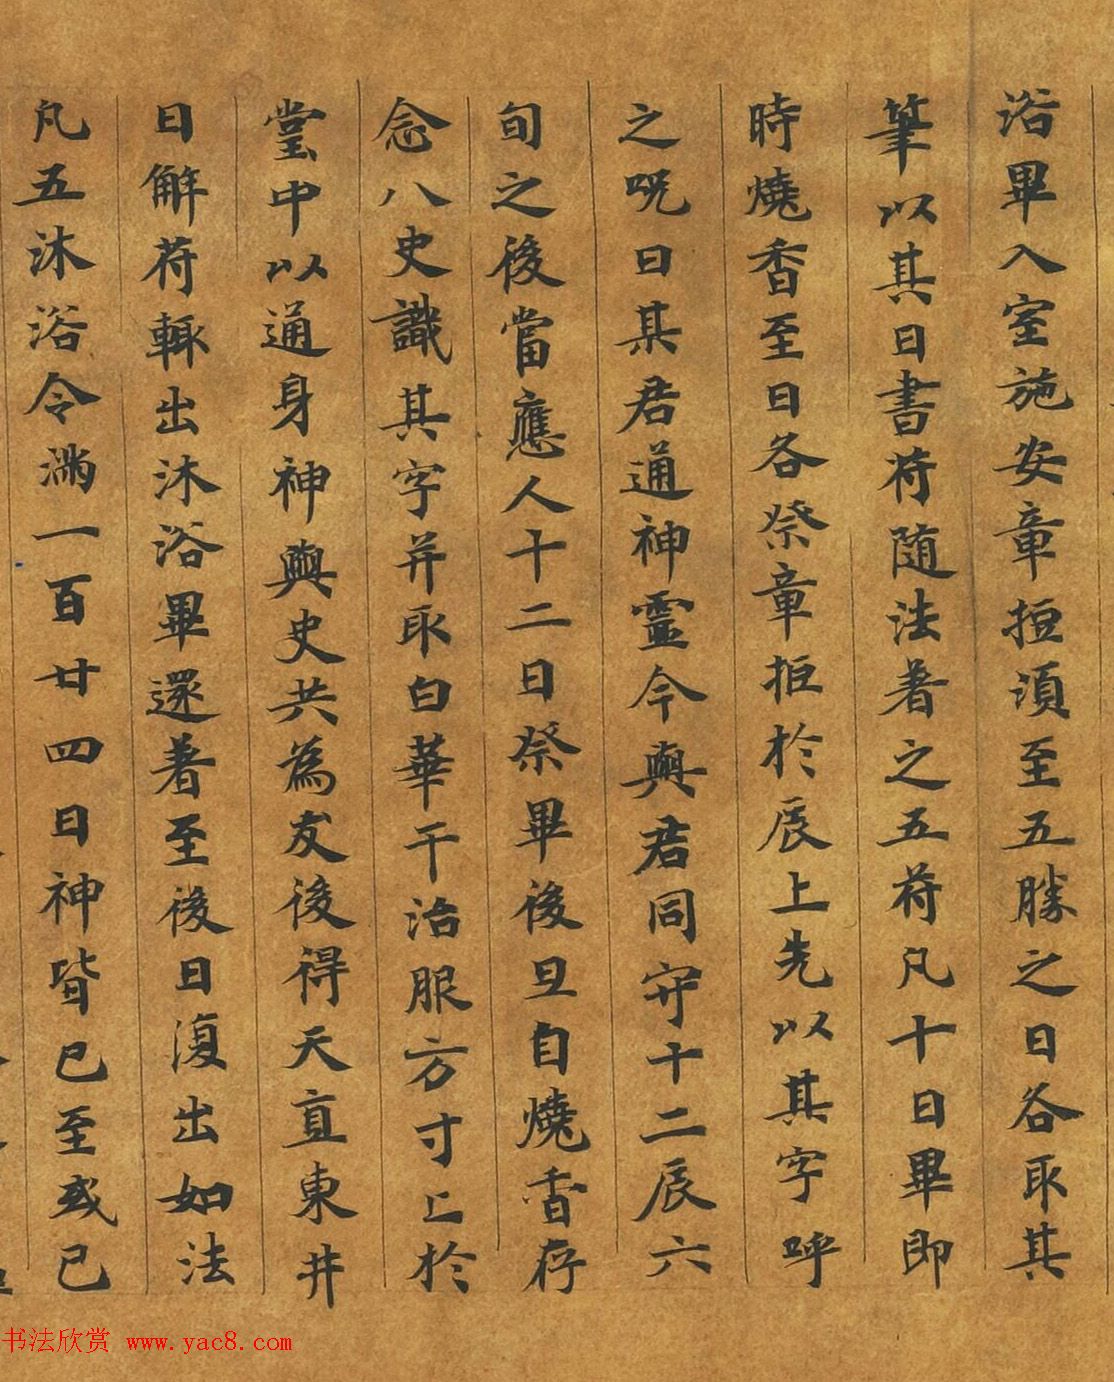 浴畢入室施安章拒須至五勝之日各取其
筆以其日書符随法著之五符凡十日畢即
時燒香至日各祭章拒於辰上先以其字呼
之呪曰某君通神靈今與君同守十二辰六
旬之後當應人十二日祭畢後旦自燒香存
念八史識其字并取白華干治服方寸上於
堂中以通身神與史共為友後得天直東井
日解符輙出沐浴畢還著至後日復出如法
凡五沐浴令满一百廿四日神皆已至或已
书法欣赏 www.yac8.com